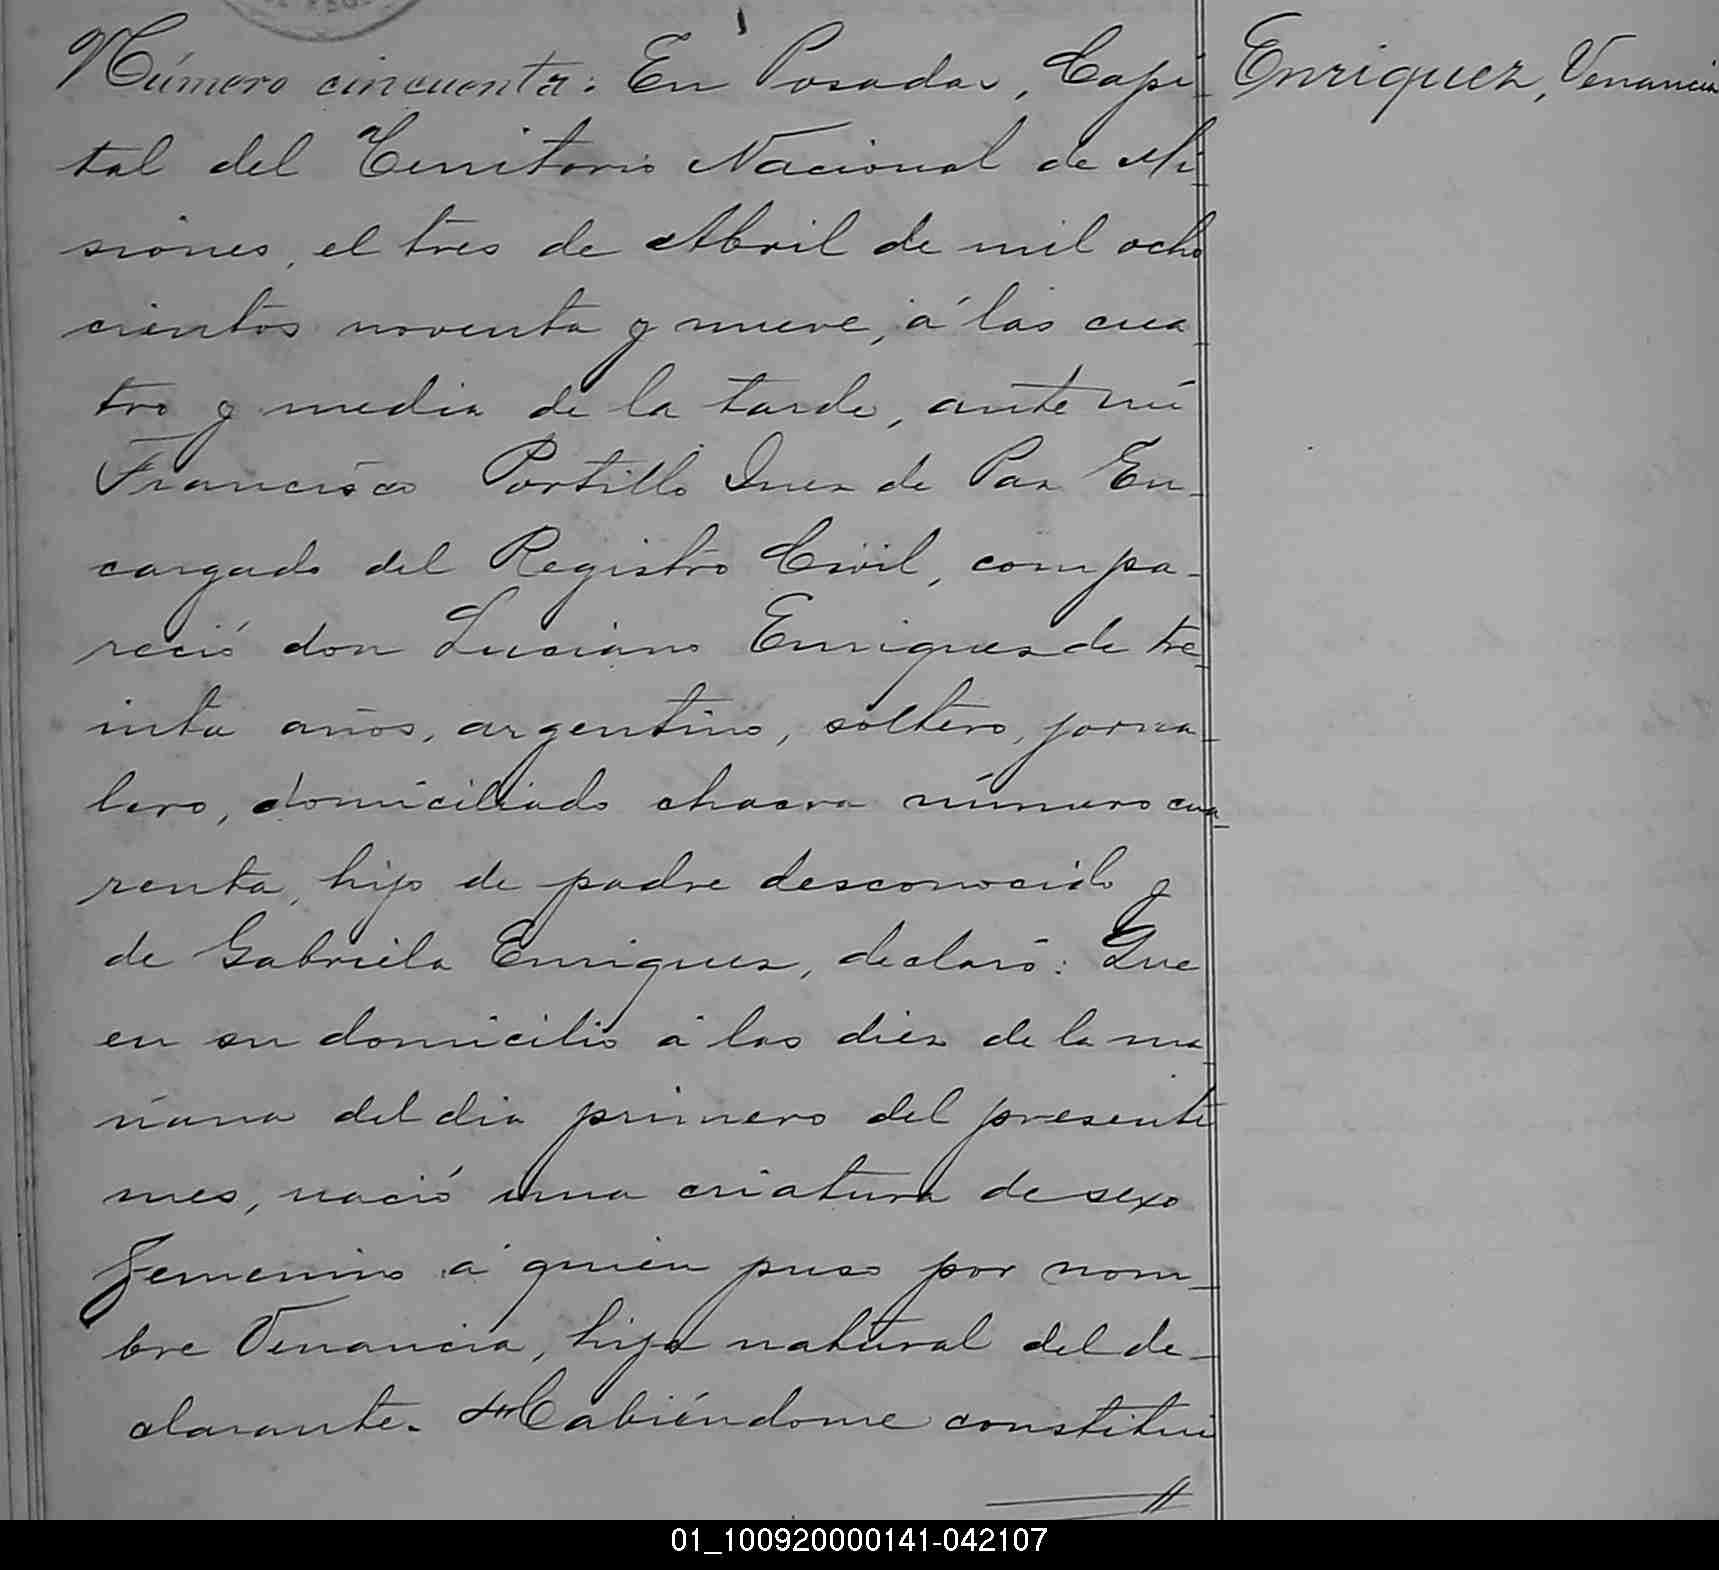 Número cincuenta: En Posadas, Capi-
tal del Territorio Nacional de Mi-
siones, el tres de Abril de mil ocho
cientos noventa y nueve, á las cua
tro y media de la tarde, ante mi
Francisco Portillo Juez de Paz En-
cargado del Registro Civil, compa-
reció don Luciano Enriquez de tre-
inta años, argentino, soltero, jorna-
lero, domiciliado chacra número cua-
renta, hijo de padre desconocido y
de Gabriela Enriquez, declaró: Que
en su domicilio á las diez de la ma-
ñana del dia primero del presente
mes, nació una criatura de sexo
femenino á quien puso por nom-
bre Venancia, hija natural del de-
clarante. Habiéndome constitui
Enriquez, Venancia
01_100920000141-042107